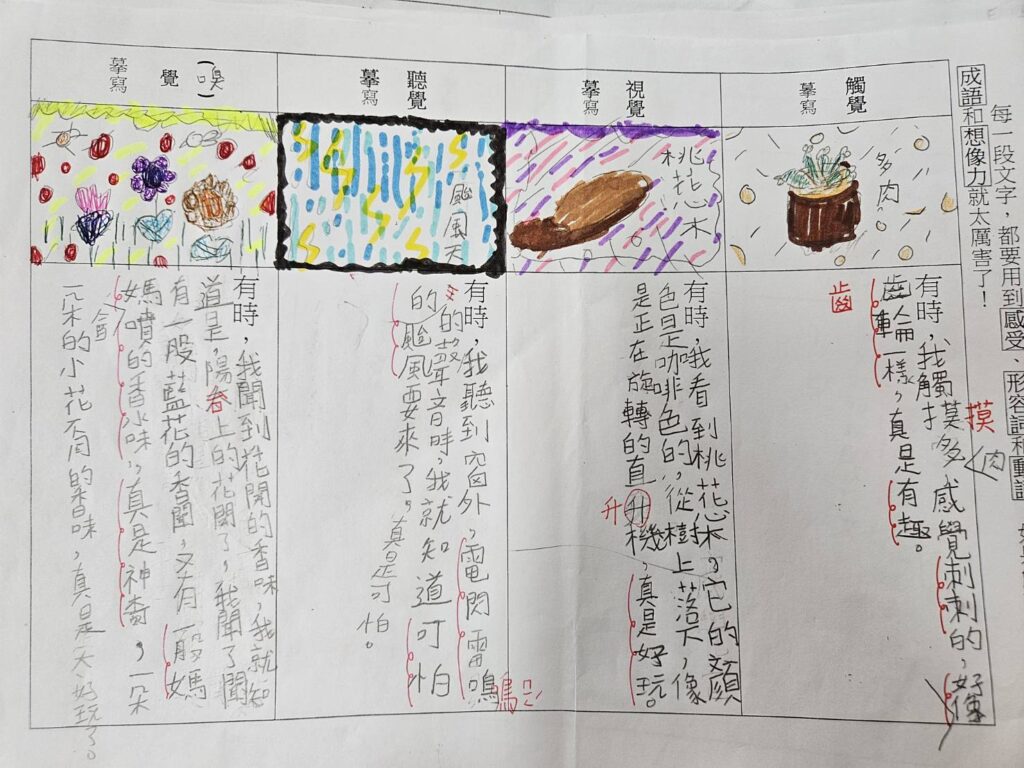 每一段文字，都要用到感受、形容詞和動詞
成語和想像力就太厲害了！
觸覺
摹寫
多肉
有時，我觸摸多肉感覺刺刺的，好像
摸
齒輪一樣，真是有趣。
齒
視覺
摹寫
桃花心木
有時，我看到桃花心木。它的顏
色是咖啡色的，從樹上落下，像
是正在旋轉的直升機，真是好玩。
升
聽覺
摹寫
颱風天
有時，我聽到窗外，電閃雷鳴
鳴
的聲音時，我就知道可怕
的颱風要來了。真是可怕。
(嗅)
覺
摹寫
有時，我聞到花開的香味，我就知
道是，陽春上的花開了，我聞了聞
有一股藍花的香聞，又有一股媽
媽噴的香水味，真是神奇，一朵
一朵的小花不同的香味，真是太好玩了。
會